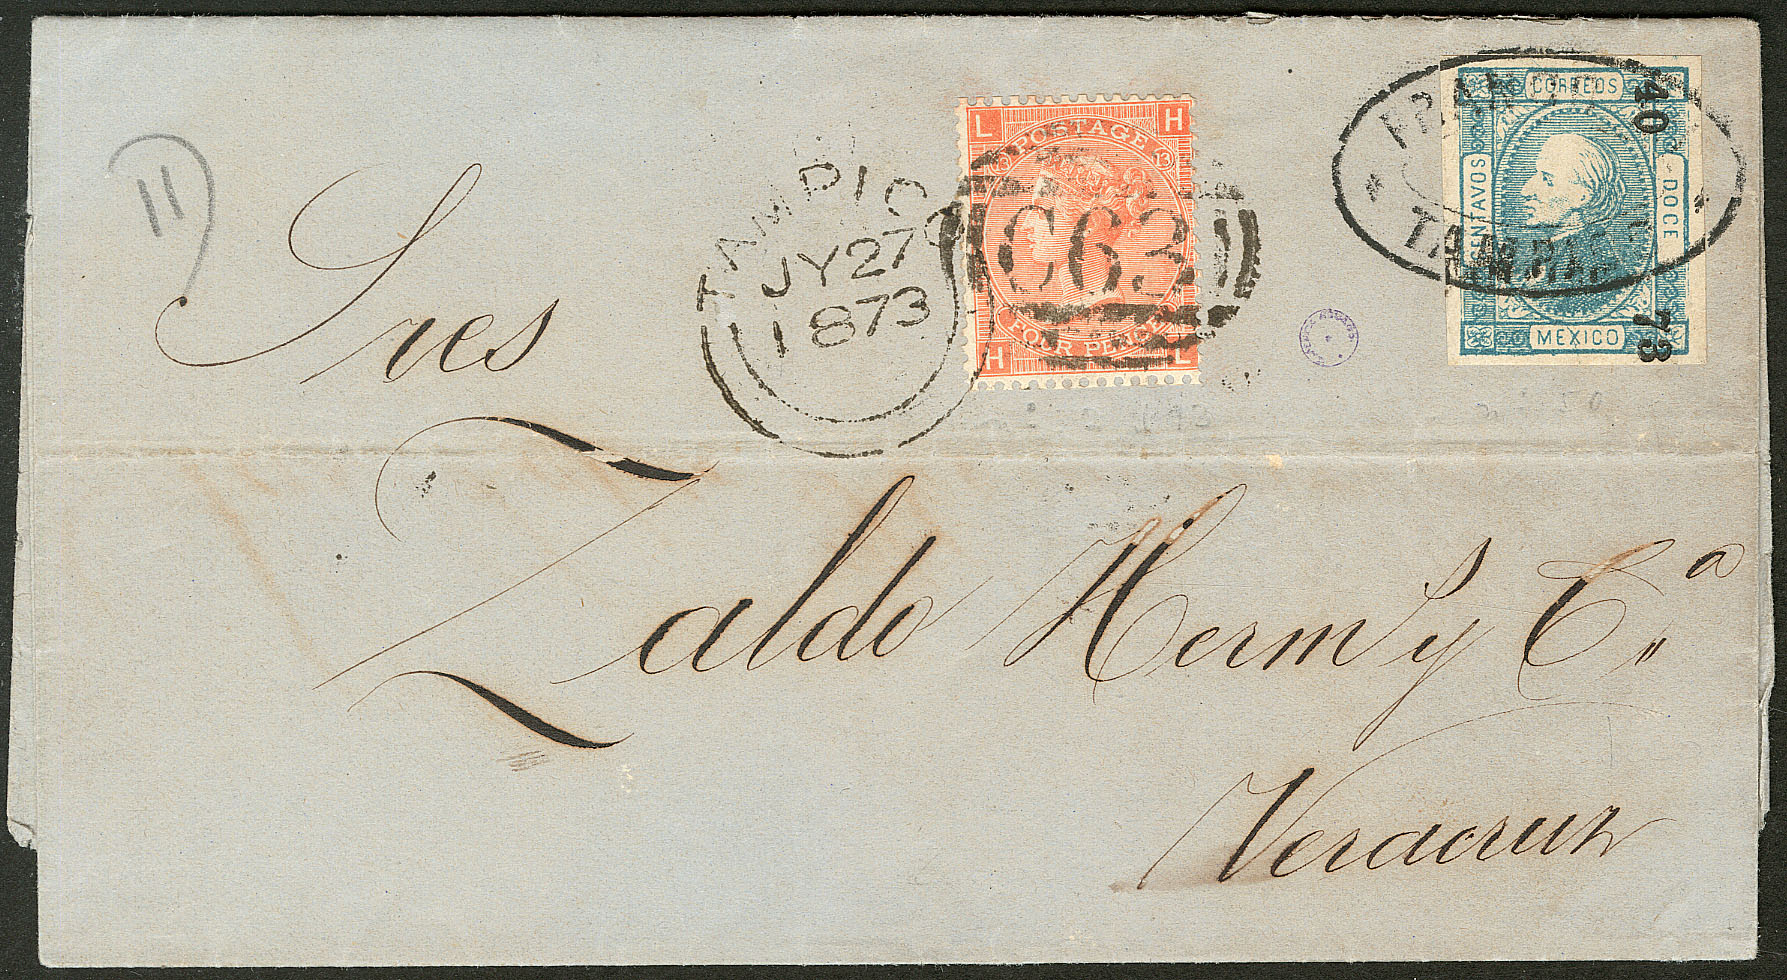 11
TAMPICO
JY 27
1873
C63
L H
POSTAGE
13 13
FOUR PENCE
H L
FRANCO
TAMPICO
CORREOS
CENTAVOS
DOCE
MEXICO
40 73
Sres
Zaldo Herms y Cª
Veracruz